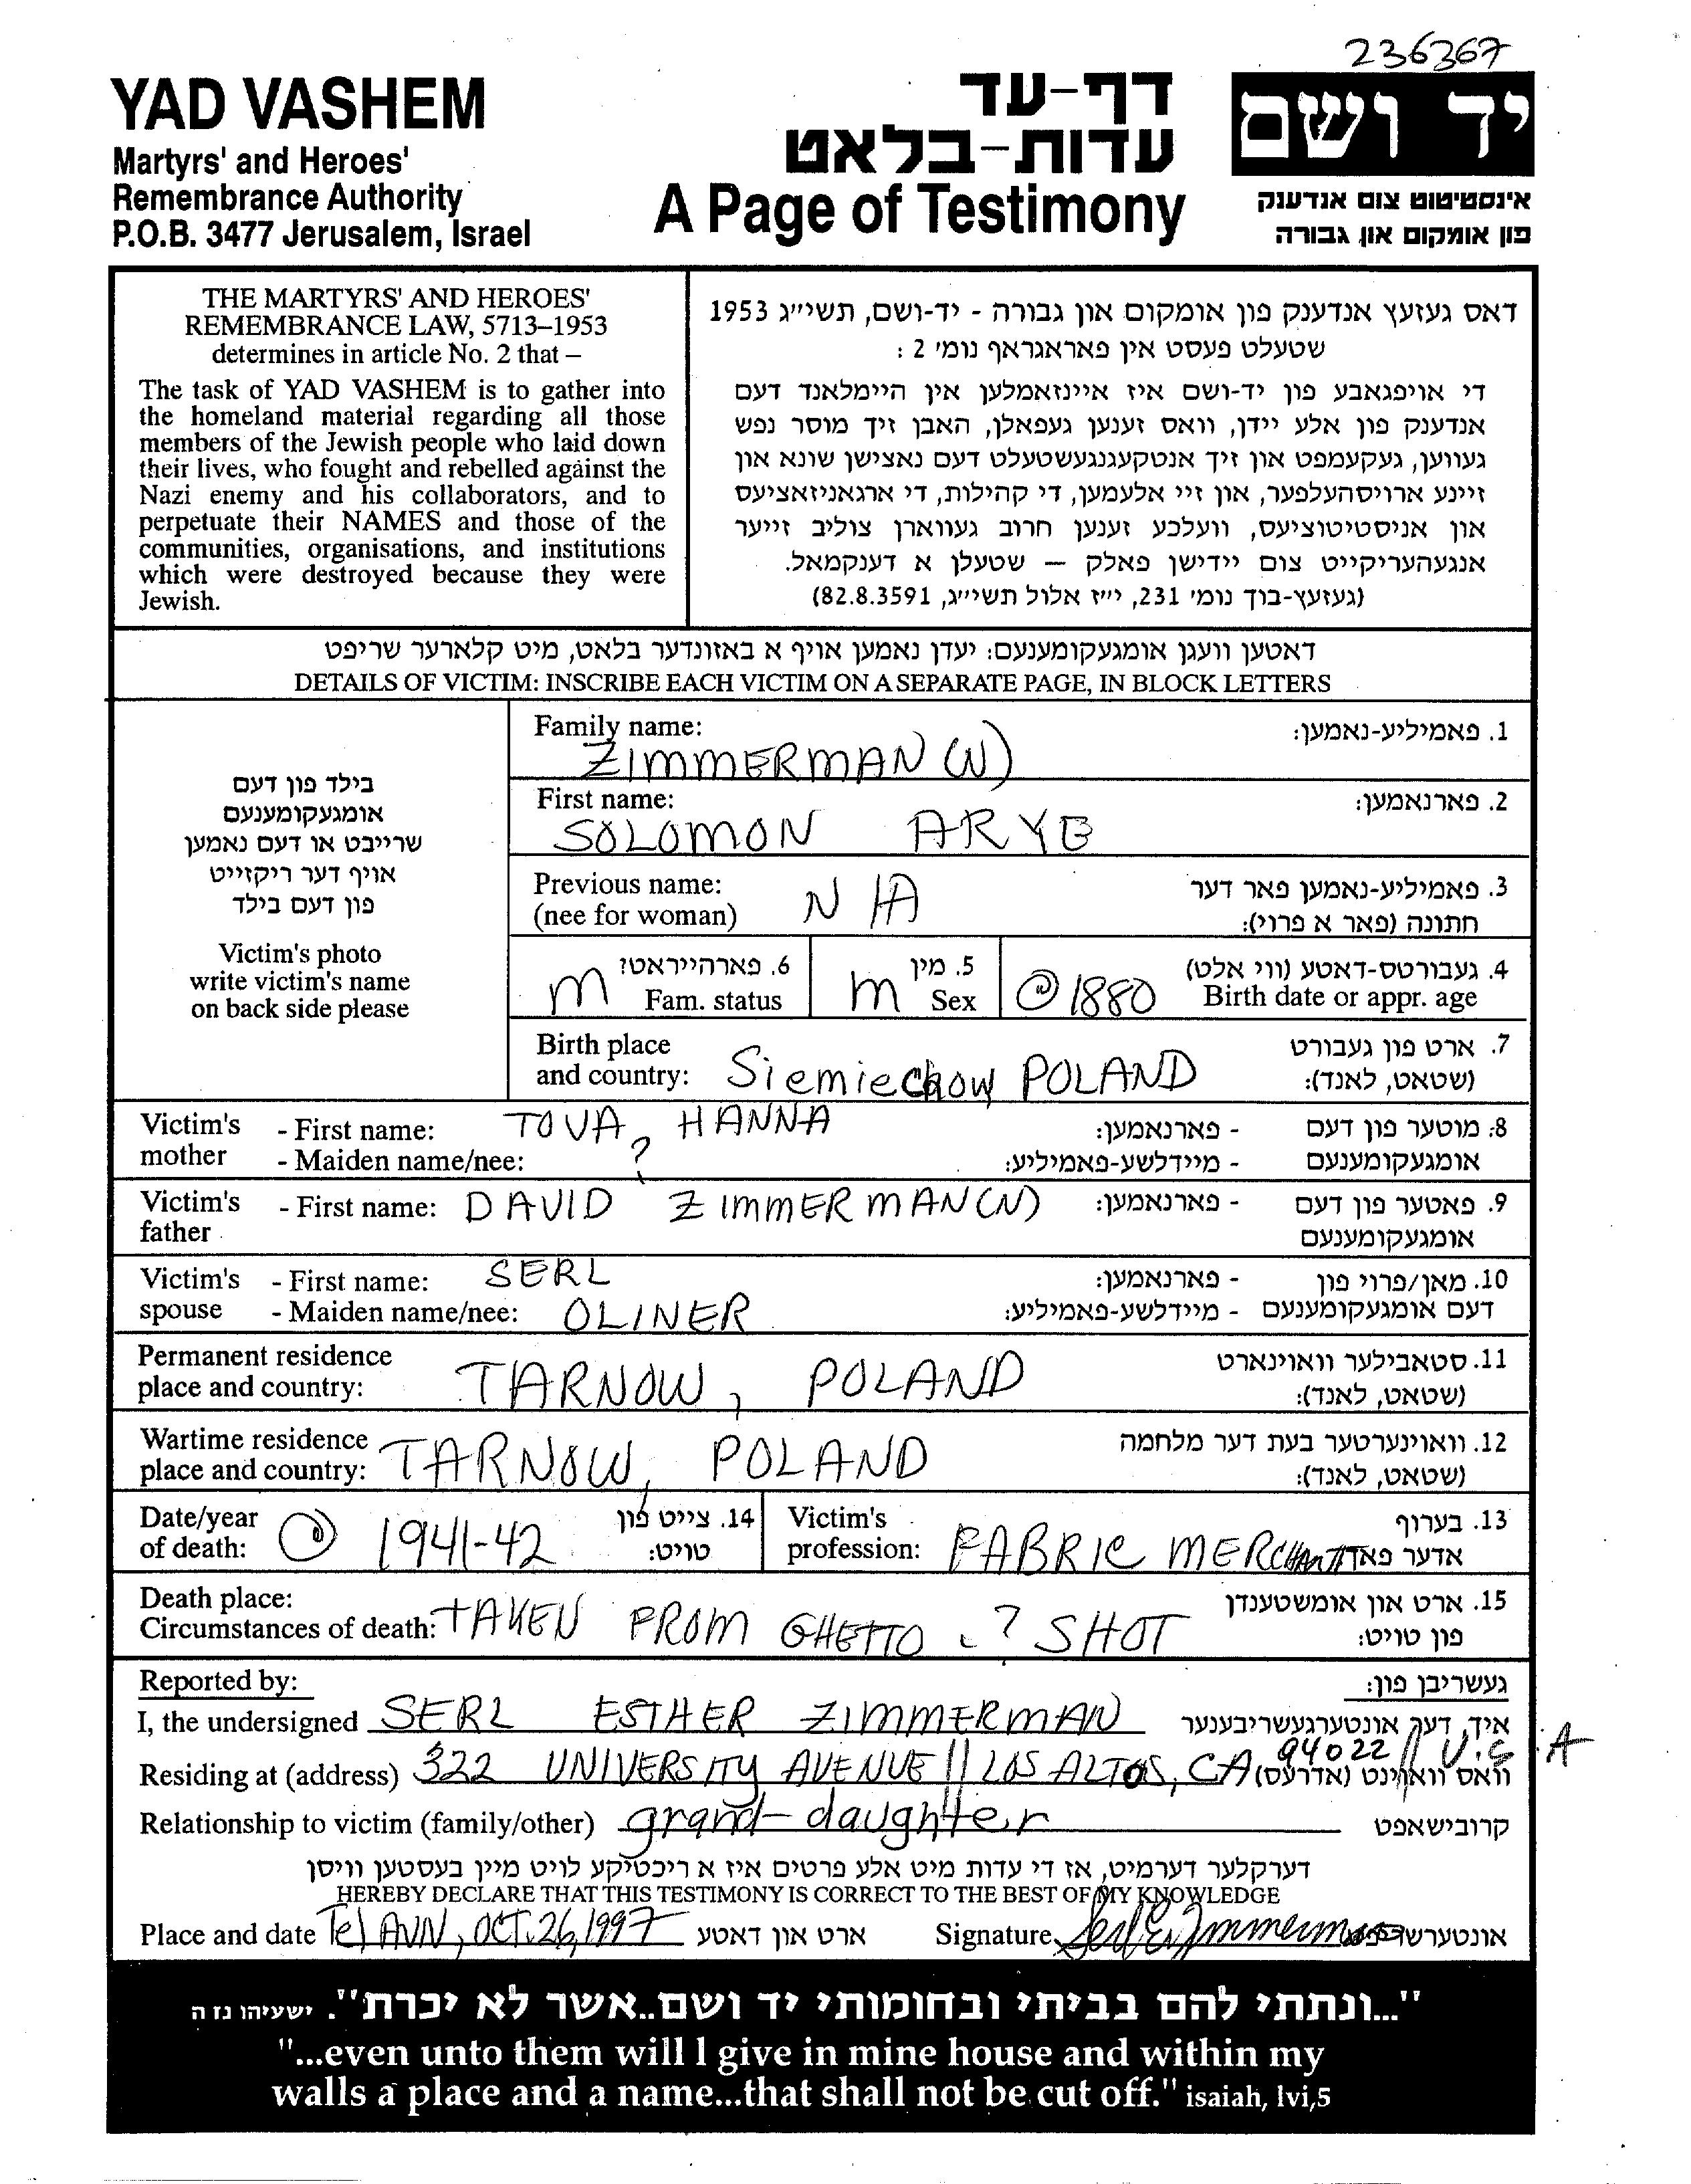 236367
YAD VASHEM
Martyrs' and Heroes'
Remembrance Authority
P.O.B. 3477 Jerusalem, Israel
דף-עד
עדות-בלאט
A Page of Testimony
יד ושם
אינסטיטוט צום אנדענק
פון אומקום און גבורה
THE MARTYRS' AND HEROES'
REMEMBRANCE LAW, 5713–1953
determines in article No. 2 that –
The task of YAD VASHEM is to gather into
the homeland material regarding all those
members of the Jewish people who laid down
their lives, who fought and rebelled against the
Nazi enemy and his collaborators, and to
perpetuate their NAMES and those of the
communities, organisations, and institutions
which were destroyed because they were
Jewish.
דאס געזעץ אנדענק פון אומקום און גבורה - יד-ושם, תשי״ג 1953
שטעלט פעסט אין פאראגראף נומ׳ 2 :
די אויפגאבע פון יד-ושם איז איינזאמלען אין היימלאנד דעם
אנדענק פון אלע יידן, וואס זענען געפאלן, האבן זיך מוסר נפש
געווען, געקעמפט און זיך אנטקעגנגעשטעלט דעם נאצישן שונא און
זיינע ארויסהעלפער, און זיי אלעמען, די קהילות, די ארגאניזאציעס
און אניסטיטוציעס, וועלכע זענען חרוב געווארן צוליב זייער
אנגעהעריקייט צום יידישן פאלק — שטעלן א דענקמאל.
(געזעץ-בוך נומ׳ 231, י״ז אלול תשי״ג, 82.8.3591)
דאטען וועגן אומגעקומענעם: יעדן נאמען אויף א באזונדער בלאט, מיט קלארער שריפט
DETAILS OF VICTIM: INSCRIBE EACH VICTIM ON A SEPARATE PAGE, IN BLOCK LETTERS
בילד פון דעם
אומגעקומענעם
שרייבט או דעם נאמען
אויף דער ריקזייט
פון דעם בילד
Victim's photo
write victim's name
on back side please
Family name: ZIMMERMAN (N) 1. פאמיליע-נאמען:
First name: SOLOMON ARYE 2. פארנאמען:
Previous name: N/A 3. פאמיליע-נאמען פאר דער
(nee for woman) חתונה (פאר א פרוי):
m 6. פארהייראט? m 5. מין @ 1880 4. געבורטס-דאטע (ווי אלט)
Fam. status Sex Birth date or appr. age
Birth place 7. ארט פון געבורט
and country: Siemiechow POLAND (שטאט, לאנד):
Victim's - First name: TOVA, HANNA - פארנאמען: 8: מוטער פון דעם
mother - Maiden name/nee: ? - מיידלשע-פאמיליע: אומגעקומענעם
Victim's - First name: DAVID ZIMMERMAN(N) - פארנאמען: 9. פאטער פון דעם
father אומגעקומענעם
Victim's - First name: SERL - פארנאמען: 10. מאן/פרוי פון
spouse - Maiden name/nee: OLINER - מיידלשע-פאמיליע: דעם אומגעקומענעם
Permanent residence 11. סטאבילער וואוינארט
place and country: TARNOW, POLAND (שטאט, לאנד):
Wartime residence 12. וואוינערטער בעת דער מלחמה
place and country: TARNOW, POLAND (שטאט, לאנד):
Date/year 14. צייט פון Victim's 13. בערוף
of death: @ 1941-42 טויט: profession: FABRIC MERCHANT אדער פאך
Death place: 15. ארט און אומשטענדן
Circumstances of death: TAKEN FROM GHETTO . ? SHOT פון טויט:
Reported by: געשריבן פון:
I, the undersigned SERL ESTHER ZIMMERMAN איך, דער אונטערגעשריבענער
94022 // U.S.A
Residing at (address) 322 UNIVERSITY AVENUE // LOS ALTOS, CA וואס וואוינט (אדרעס)
Relationship to victim (family/other) grand-daughter קרובישאפט
דערקלער דערמיט, אז די עדות מיט אלע פרטים איז א ריכטיקע לויט מיין בעסטען וויסן
HEREBY DECLARE THAT THIS TESTIMONY IS CORRECT TO THE BEST OF MY KNOWLEDGE
Place and date Tel AVIV, OCT. 26, 1997 ארט און דאטע Signature Serl E. Zimmerman
"...ונתתי להם בביתי ובחומותי יד ושם..אשר לא יכרת". ישעיהו נז ה
"...even unto them will I give in mine house and within my
walls a place and a name...that shall not be cut off." isaiah, lvi,5